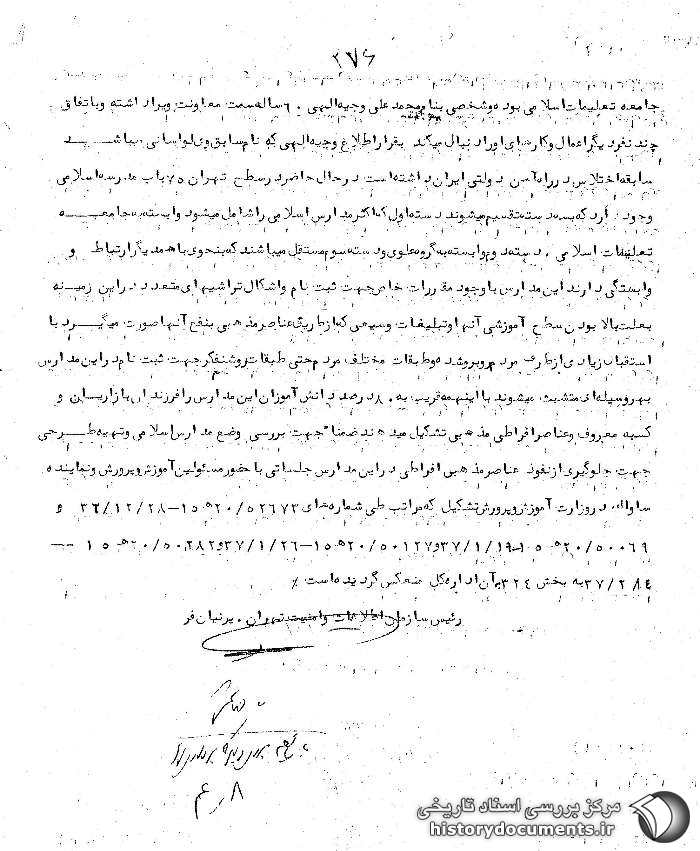 ۳۷۶
جامعه تعلیمات اسلامی بوده وشخصی بنام محمد علی وجیه الهی ۰ ۶ ساله سمت معاونت ویرا داشته وباتفاق
چند نفر دیگر اعمال وکارهای او را دنبال میکند بقرار اطلاع وجیه الهی که نام سابق وی لواسانی میباشد
سابقه اختلاس در راه آهن دولتی ایران داشته است در حال حاضر در سطح تهران ۷۵ باب مدرسه اسلامی
وجود دارد که بسه دسته تقسیم میشوند دسته اول که اکثر مدارس اسلامی را شامل میشود وابسته به جامعه
تعلیمات اسلامی ۰ دسته دوم وابسته به گروه علوی ودسته سوم مستقل میباشند که بنحوی با همدیگر ارتباط و
وابستگی دارند این مدارس با وجود مقررات خاص جهت ثبت نام واشکال تراشیهای متعدد در این زمینه
بعلت بالا بودن سطح آموزشی آنها وتبلیغات وسیعی که از طریق عناصر مذهبی بنفع آنها صورت میگیرد با
استقبال زیادی از طرف مردم روبرو شده وطبقات مختلف مردم حتی طبقات روشنفکر جهت ثبت نام در این مدارس
بهر وسیله ای متشبث میشوند با اینهمه قریب به ۸۰ درصد دانش آموزان این مدارس را فرزندان بازاریان و
کسبه معروف وعناصر افراطی مذهبی تشکیل میدهند ضمنا" جهت بررسی وضع مدارس اسلامی وتهیه طرحی
جهت جلوگیری از نفوذ عناصر مذهبی افراطی در این مدارس جلساتی با حضور مسئولین آموزش وپرورش ونماینده
ساواک در وزارت آموزش وپرورش تشکیل که مراتب طی شماره های ۵۲۶۷۳/۲۰ه۱۵-۳۶/۱۲/۲۸ و
۵۰۰۶۹/۲۰ه۱۵-۳۷/۱/۱۹ و ۵۰۱۲۷/۲۰ه۱۵-۳۷/۱/۲۶ و ۵۰۲۸۲/۲۰ه۱۵ -
۳۷/۲/۴ به بخش ۳۲۴ آن اداره کل منعکس گردیده است ٪
رئیس سازمان اطلاعات وامنیت تهران ۰ پرنیان فر
مرکز بررسی اسناد تاریخی
historydocuments.ir